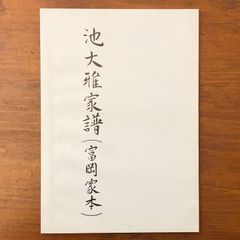 池大雅家譜(富岡家本)